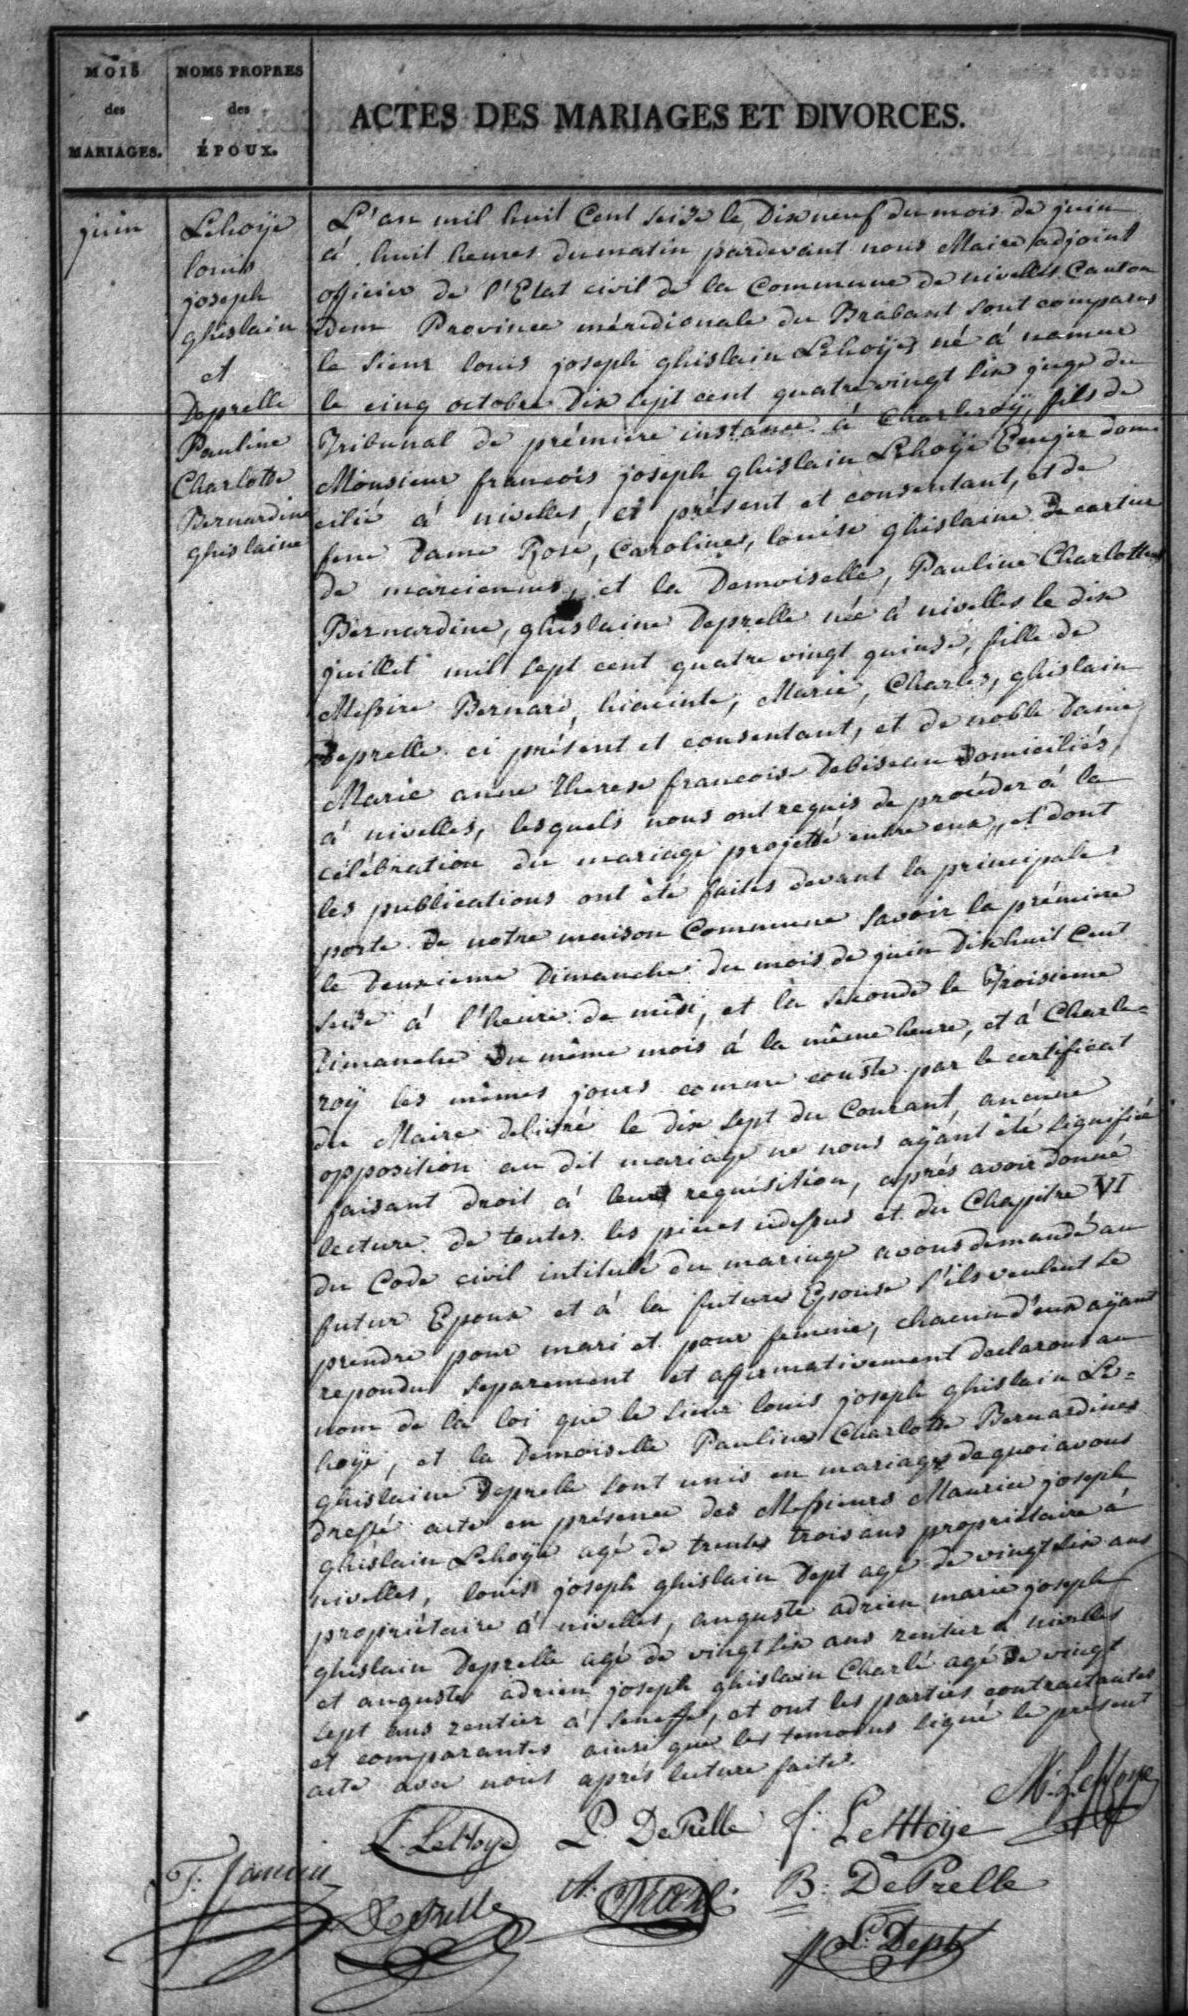 MOIS
des
MARIAGES.
NOMS PROPRES
des
ÉPOUX.
ACTES DES MARIAGES ET DIVORCES.
juin
Lehoÿe
louis
joseph
ghislain
et
Deprelle
Pauline
Charlotte
Bernardine
ghislaine
L'an mil huit Cent seize le Dix neuf du mois de juin
á huit heures du matin pardevant nous Maire adjoint
officier de l'Etat civil de la Commune de nivelles Canton
Idem Province méridionale du Brabant sont comparus
le sieur louis joseph ghislain Lehoÿe né á namur
le cinq octobre Dix sept cent quatre vingt six juge du
Tribunal de prémiere instance á Charleroÿ, fils de
Monsieur francois joseph ghislain Lehoÿe Rentier domi
cilié á nivelles, ci présent et consentant, et de
feue Dame Rose, Caroline, louise ghislaine De cartier
de marciennes, et la Demoiselle, Pauline Charlotte
Bernardine, ghislaine Deprelle née á nivelles le dix
juillet mil sept cent quatre vingt quinse, fille de
Messire Bernard, hiacinte, Marie, Charles, ghislain
Deprelle ci présent et consentant, et de noble Dame
Marie anne therese francoise Debiseau Domiciliés
á nivelles, lesquels nous ont requis de procéder á la
célébration du mariage projetté entre eux, et dont
les publications ont été faites devant la principale
porte de notre maison Commune savoir la prémiere
le deuxieme Dimanche du mois de juin Dix huit Cent
seize á l'heure de midi, et la seconde le Troisieme
Dimanche Du même mois á la même heure, et á Charle=
roÿ les mêmes jours comme conste par le certificat
du Maire delivré le dix sept du Courant, aucune
opposition au dit mariage ne nous aÿant été signifiée
faisant droit á leur requisition, aprés avoir donné
lecture de toutes les pieces cidessus et du Chapitre VI
du Code civil intitulé du mariage avons demandé au
futur Epoux et á la future Epouse s'ils veulent se
prendre pour mari et pour femme, chacun d'eux aÿant
repondu separement et affirmativement declarons au
nom de la loi que le sieur louis joseph ghislain Le=
hoÿe, et la Demoiselle Pauline Charlotte Bernardine
ghislaine Deprelle sont unis en mariage de quoi avons
dressé acte en présence des Messieurs Maurice joseph
ghislain Lehoÿe agé de trente trois ans propriétaire á
nivelles, louis joseph ghislain Dept agé de vingt six ans
propriétaire á nivelles, auguste adrien marie joseph
ghislain Deprelle agé de vingt six ans rentier á nivelles
et auguste adrien joseph ghislain Charlé agé de vingt
sept ans rentier á Seneffe, et ont les parties contractantes
et comparantes ainsi que les temoins signé le présent
acte avec nous aprés lecture faite.
L. LeHoye P. DePrelle f: LeHoÿe M. LeHoye
A. B: DePrelle
DePrelle
L. Dept